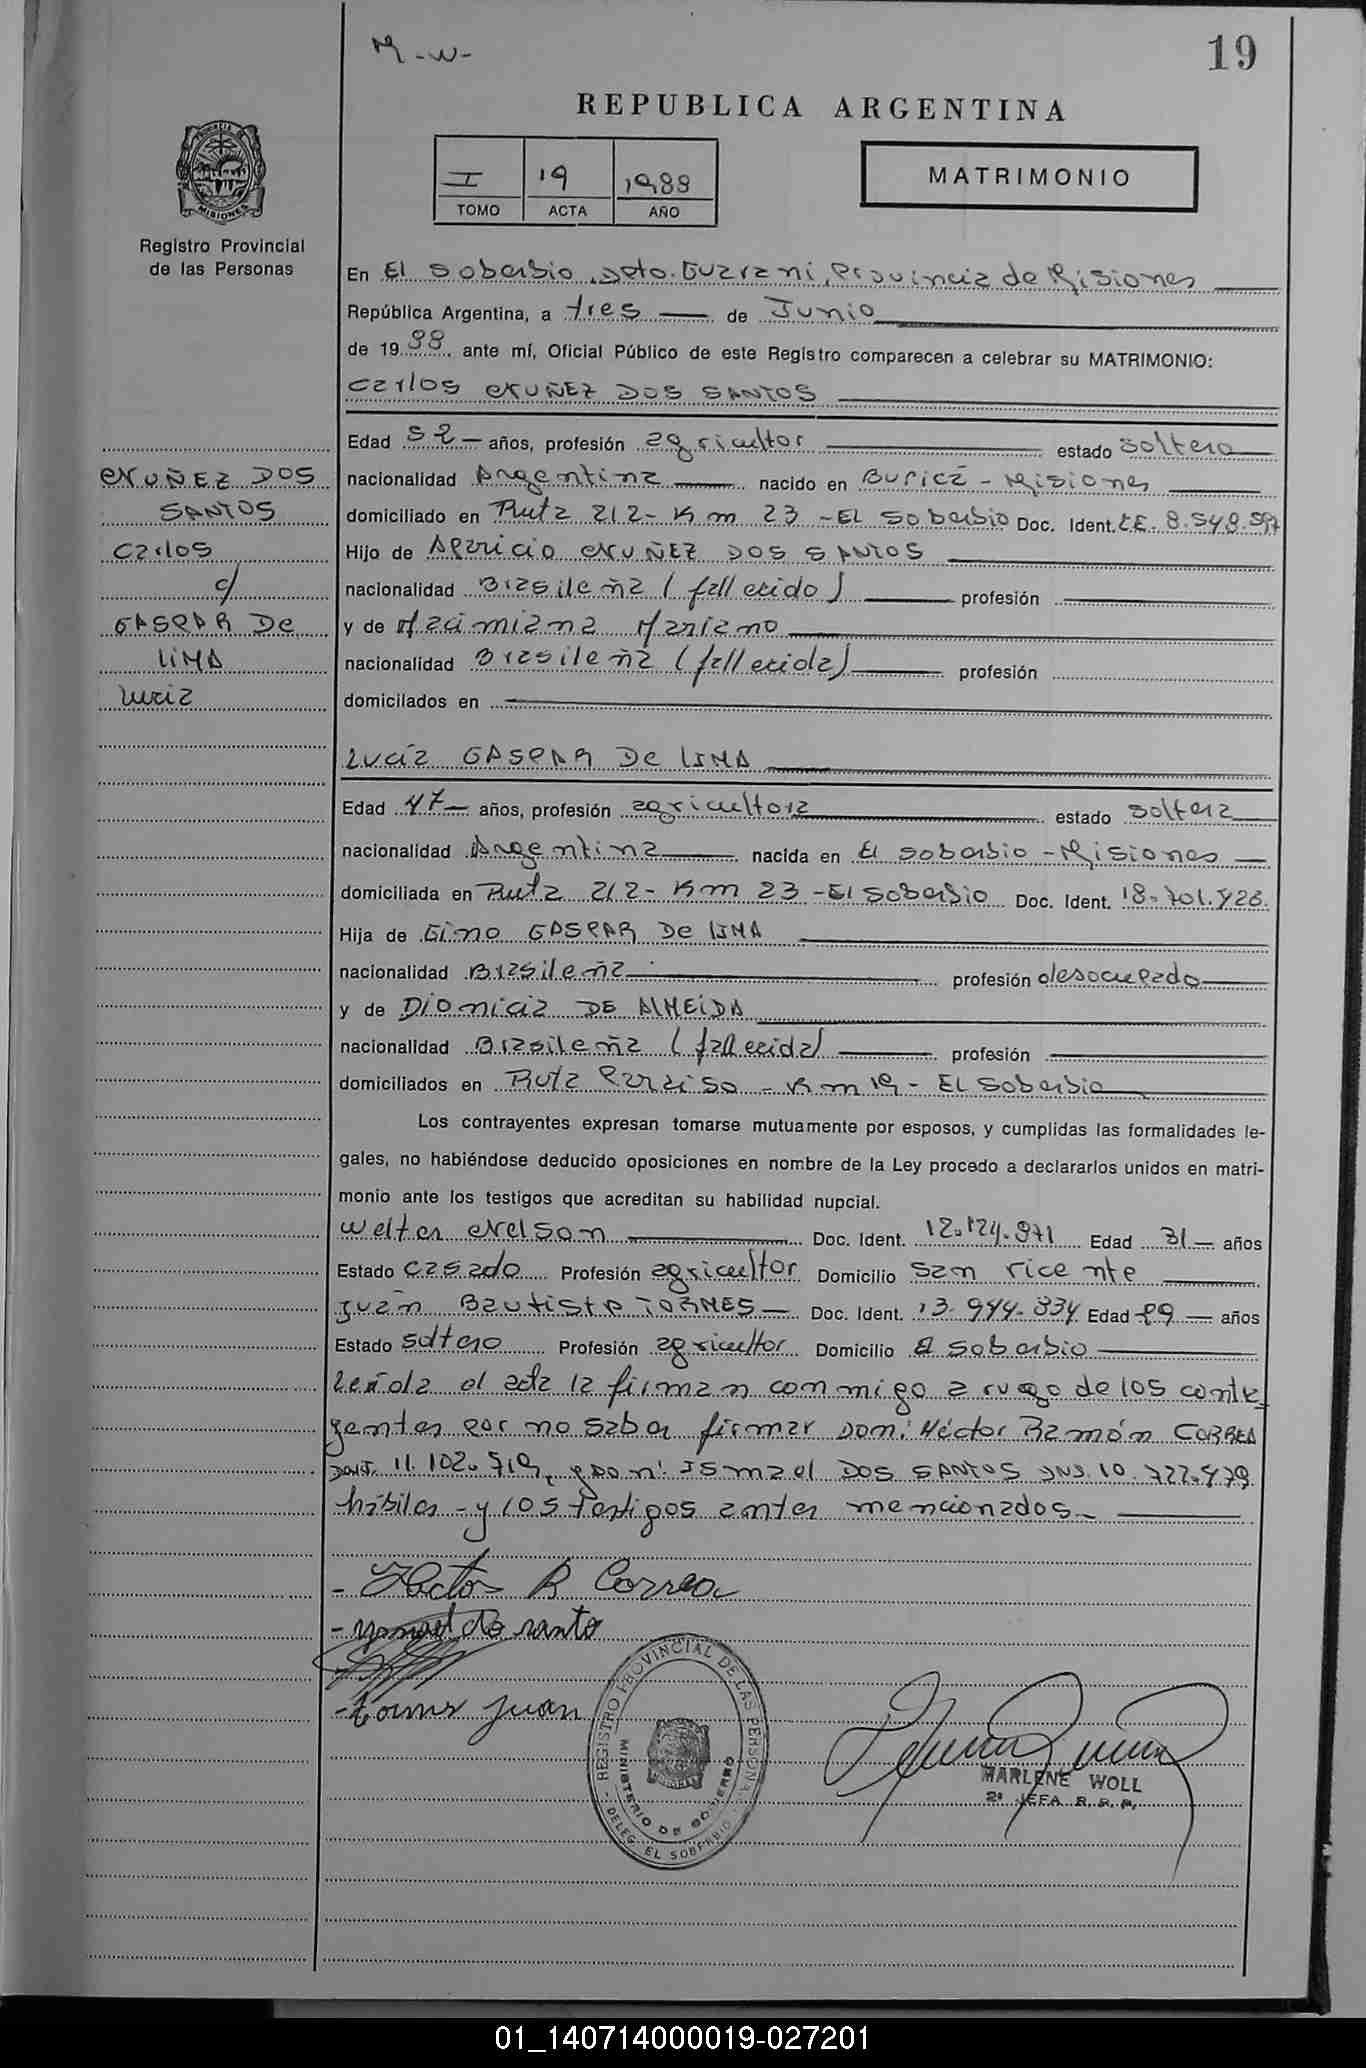 M-W-
19
REPUBLICA ARGENTINA
I 19 1988
TOMO ACTA AÑO
MATRIMONIO
PROVINCIA DE MISIONES
Registro Provincial
de las Personas
En El Soberbio, Dpto. Guarani, Provincia de Misiones
República Argentina, a tres de Junio
de 1988, ante mí, Oficial Público de este Registro comparecen a celebrar su MATRIMONIO:
Carlos NUÑEZ DOS SANTOS
Edad 52 años, profesión agricultor estado soltero
nacionalidad Argentina nacido en Buricá - Misiones
domiciliado en Ruta 212 - Km 23 - El Soberbio Doc. Ident.
Hijo de Aparicio NUÑEZ DOS SANTOS
nacionalidad Brasileña (fallecido) profesión
y de Maximiana Mariano
nacionalidad Brasileña (fallecida) profesión
domicilados en
NUÑEZ DOS
SANTOS
Carlos
c/
GASPAR De
LIMA
Lucia
Lucía GASPAR De LIMA
Edad 47 años, profesión agricultora estado soltera
nacionalidad Argentina nacida en El Soberbio - Misiones
domiciliada en Ruta 212 - Km 23 - El Soberbio Doc. Ident. 18.701.426
Hija de GASPAR De LIMA
nacionalidad Brasileña profesión desocupado
y de Dionicia DE ALMEIDA
nacionalidad Brasileña (fallecida) profesión
domiciliados en Ruta Paraiso - Km 19 - El Soberbio
Los contrayentes expresan tomarse mutuamente por esposos, y cumplidas las formalidades le-
gales, no habiéndose deducido oposiciones en nombre de la Ley procedo a declararlos unidos en matri-
monio ante los testigos que acreditan su habilidad nupcial.
Welter Nelson Doc. Ident. 12.124.971 Edad 31 años
Estado casado Profesión agricultor Domicilio San Vicente
Juan Bautista TORMES Doc. Ident. 13.944.834 Edad 29 años
Estado soltero Profesión agricultor Domicilio El Soberbio
Leída el acta la firman conmigo a ruego de los contra
yentes por no saber firmar Don: Héctor Ramón CORREA
DNI. 11.102.719, y Don: Ismael DOS SANTOS DNI. 10.722.479
hábiles - y los testigos antes mencionados.
- Hector R Correa
- Ysmael Do santo
- tormes juan
REGISTRO PROVINCIAL DE LAS PERSONAS
MINISTERIO DE GOBIERNO
DELEG. EL SOBERBIO
MARLENE WOLL
2ª JEFA R. P. P.
01_140714000019-027201